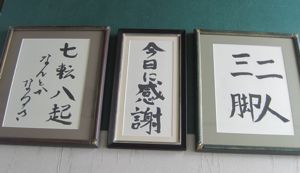 七転八起
なんとかなるさ
今日に感謝
二人
三脚